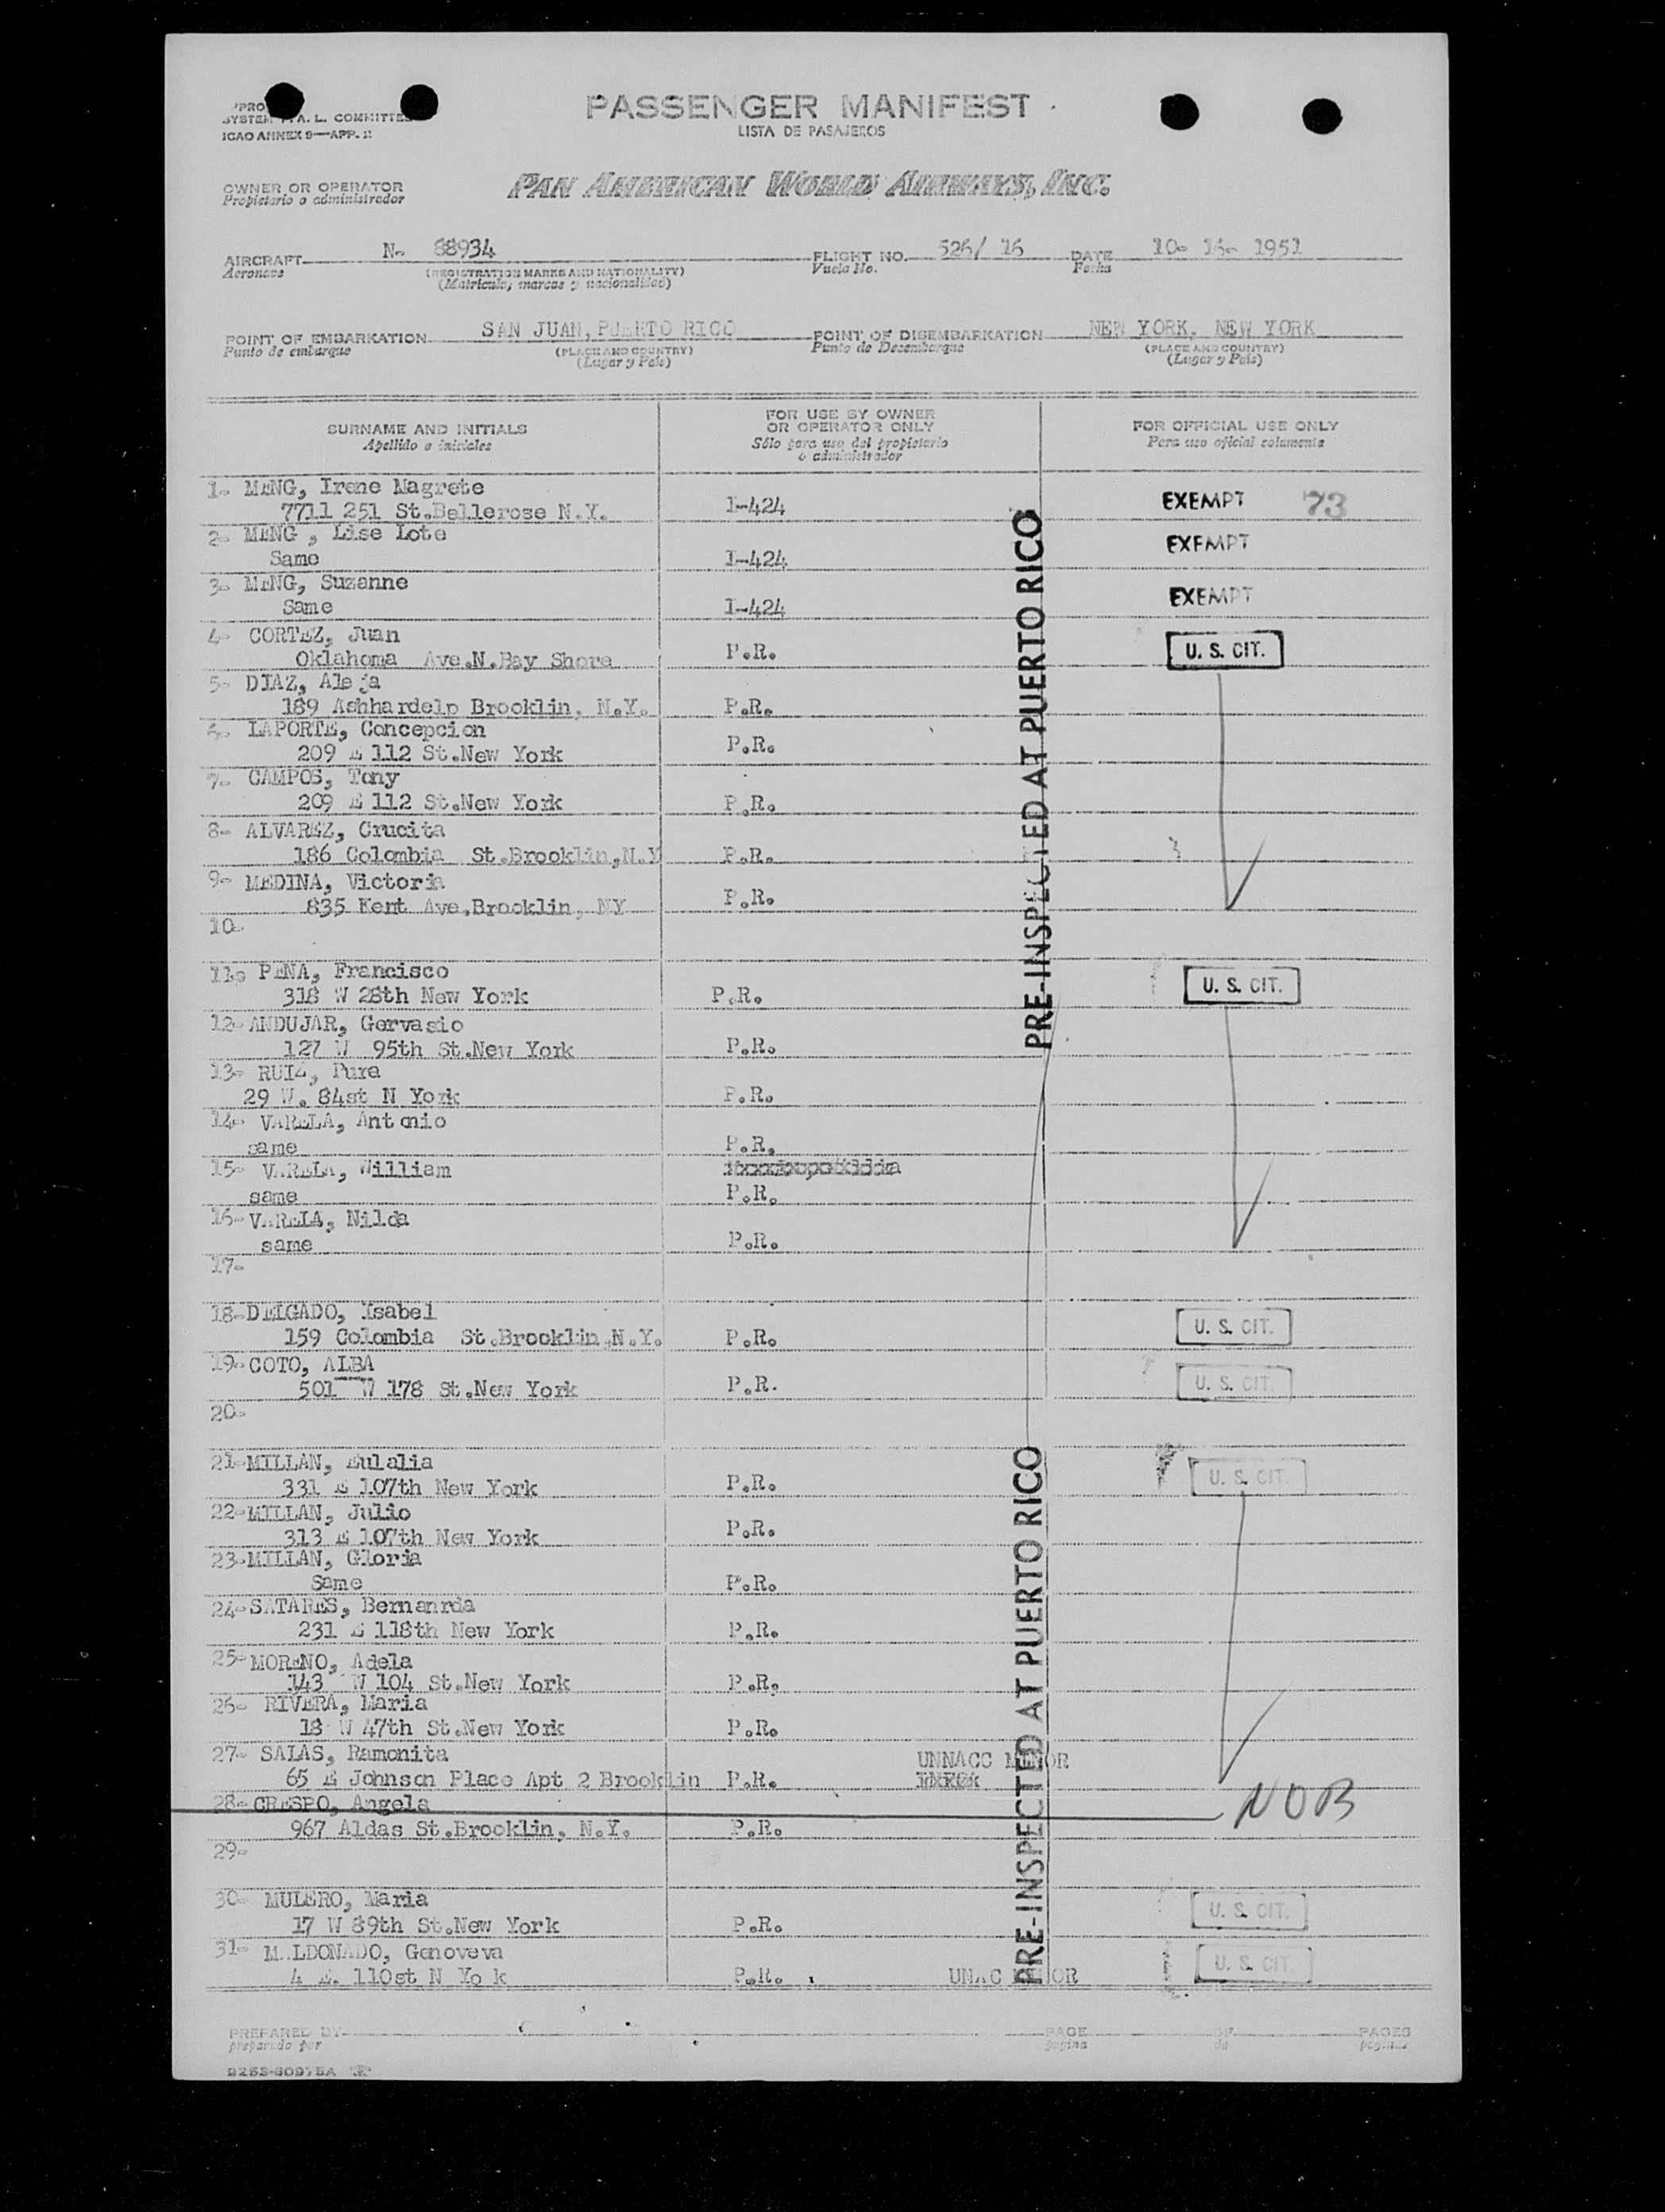 SYSTEM F. A. L. COMMITTEE
ICAO ANNEX 9—APP.
PASSENGER MANIFEST
LISTA DE PASAJEROS
OWNER OR OPERATOR
Propietario o administrador
PAN AMERICAN WORLD AIRWAYS, INC.
AIRCRAFT N- 88934 FLIGHT NO. 526/ 16 DATE 10- 16- 1951
Aeronave (REGISTRATION MARKS AND NATIONALITY) Vuelo No. Fecha
(Matricula, marcas y nacionalidad)
POINT OF EMBARKATION SAN JUAN, PUERTO RICO POINT OF DISEMBARKATION NEW YORK, NEW YORK
Punto de embarque (PLACE AND COUNTRY) Punto de Desembarque (PLACE AND COUNTRY)
(Lugar y Pais) (Lugar y Pais)
SURNAME AND INITIALS FOR USE BY OWNER OR OPERATOR ONLY FOR OFFICIAL USE ONLY
Apellido e iniciales Sólo para uso del propietario o administrador Para uso oficial solamente
1- MENG, Irene Magrete
7711 251 St.Bellerose N.Y. I-424 EXEMPT 73
2- MENG , Lise Lote EXEMPT
Same I-424
3- MENG, Suzanne EXEMPT
Same I-424
4- CORTEZ, Juan
Oklahoma Ave.N.Bay Shore P.R. U. S. CIT.
5- DIAZ, Aleja
189 Ashhardelp Brooklin, N.Y. P.R.
6- LAPORTE, Concepcion
209 E 112 St.New York P.R.
7- CAMPOS, Tony
209 E 112 St.New York P.R.
8- ALVAREZ, Crucita
186 Colombia St.Brooklin,N.Y P.R.
9- MEDINA, Victoria
835 Kent Ave.Brooklin, NY P.R.
10-
PRE-INSPECTED AT PUERTO RICO
11- PENA, Francisco
318 W 28th New York P.R. U. S. CIT.
12- ANDUJAR, Gervasio
127 W 95th St.New York P.R.
13- RUIZ, Pura
29 W. 84st N York P.R.
14- VARELA, Antonio
same P.R.
15- VARELA, William
same P.R.
16- VARELA, Nilda
same P.R.
17-
18-DELGADO, Isabel
159 Colombia St.Brooklin,N.Y. P.R. U. S. CIT.
19- COTO, ALBA
501 W 178 St.New York P.R. U. S. CIT.
20-
21-MILLAN, Eulalia
331 E 107th New York P.R. U. S. CIT.
22-MILLAN, Julio
313 E 107th New York P.R.
23-MILLAN, Gloria
Same P.R.
24-SATARES, Bernanrda
231 E 118th New York P.R.
25-MORENO, Adela
143 W 104 St.New York P.R.
26- RIVERA, Maria
18 W 47th St.New York P.R.
27- SALAS, Ramonita UNNACC MINOR
65 E Johnson Place Apt 2 Brooklin P.R.
28- CRESPO, Angela NOB
967 Aldas St.Brooklin, N.Y. P.R.
29-
PRE-INSPECTED AT PUERTO RICO
30- MULERO, Maria
17 W 89th St.New York P.R. U. S. CIT.
31- MALDONADO, Genoveva
4 E. 110st N Yo k P.R. UNAC MINOR U. S. CIT.
PREPARED BY PAGE OF PAGES
preparado por pagina de páginas